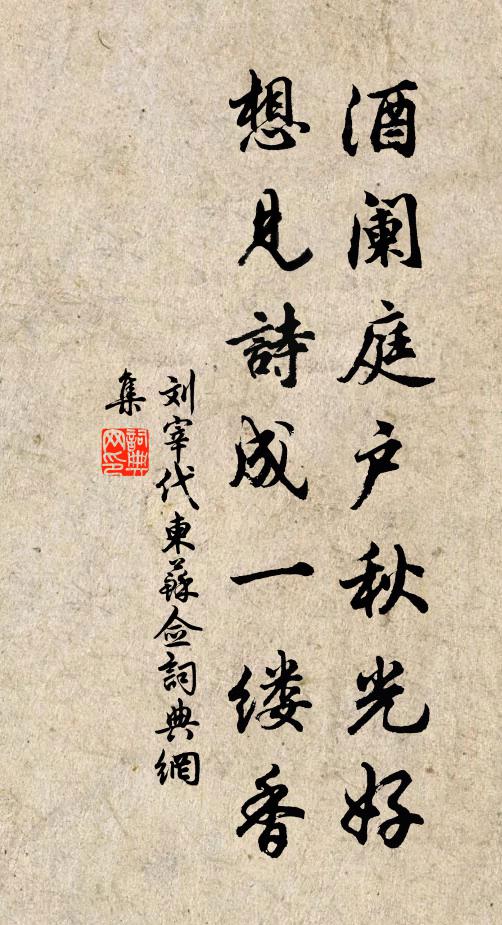 酒阑庭户秋光好
想見詩成一缕香
刘宰代東蘇僉詞典網
集
詞典网印